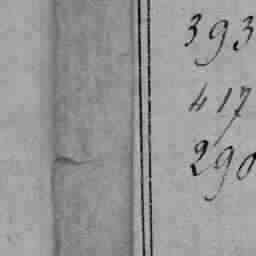 393
417
290